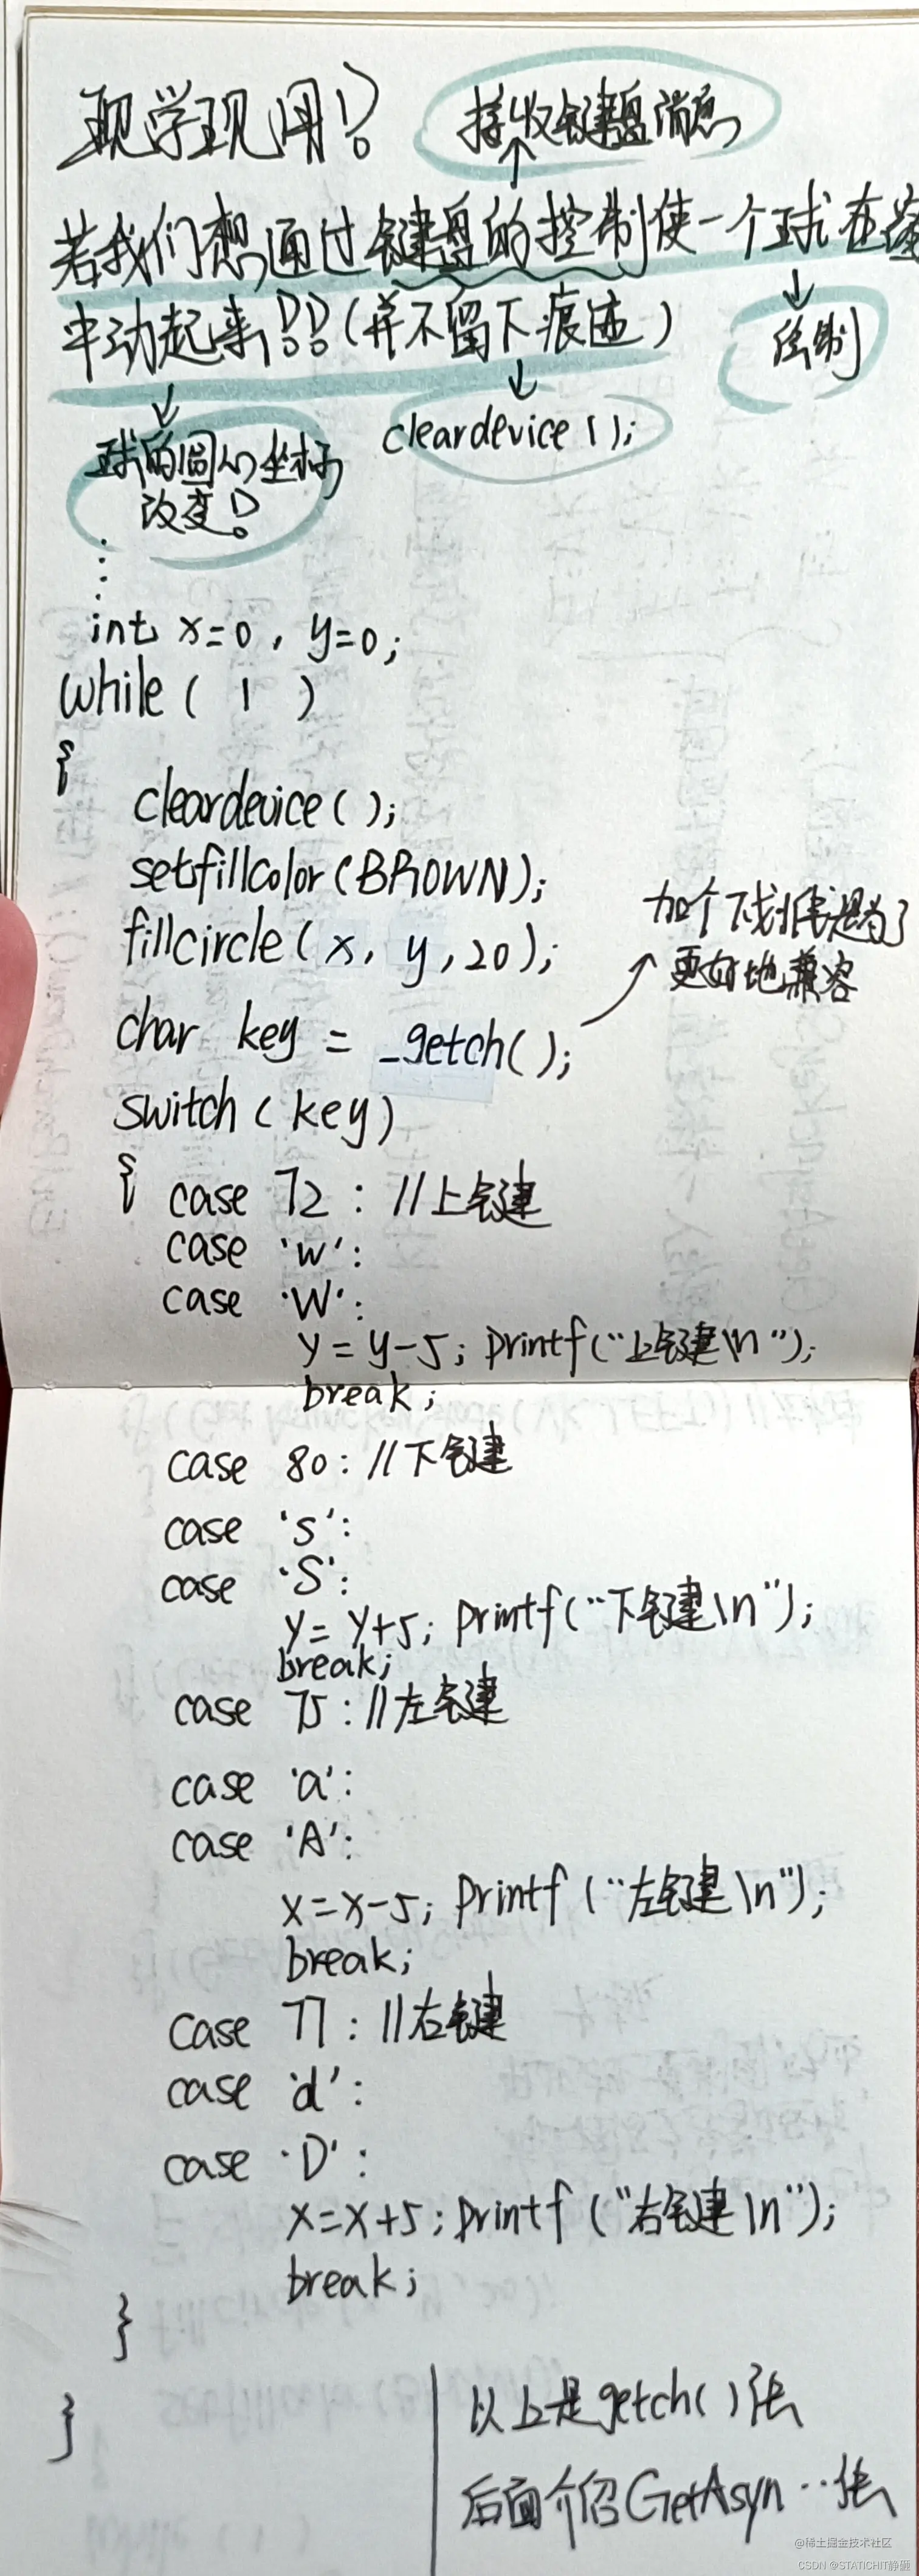 现学现用!
接收键盘消息
若我们想通过键盘的控制使一个球在窗
中动起来!!(并不留下痕迹)
绘制
cleardevice();
球的圆心坐标
改变!
⋮
int x=0, y=0;
while( 1 )
{
cleardevice();
setfillcolor(BROWN);
fillcircle(x, y, 20);
加个下划线是为了
更好地兼容
char key = _getch();
switch(key)
{ case 72: //上键
case 'w':
case 'W':
y=y-5; printf("上键\n");
break;
case 80: //下键
case 's':
case 'S':
y=y+5; printf("下键\n");
break;
case 75: //左键
case 'a':
case 'A':
x=x-5; printf("左键\n");
break;
case 77: //右键
case 'd':
case 'D':
x=x+5; printf("右键\n");
break;
}
}
以上是getch()法
后面介绍GetAsyn…法
@稀土掘金技术社区
CSDN @STATICHIT静砸